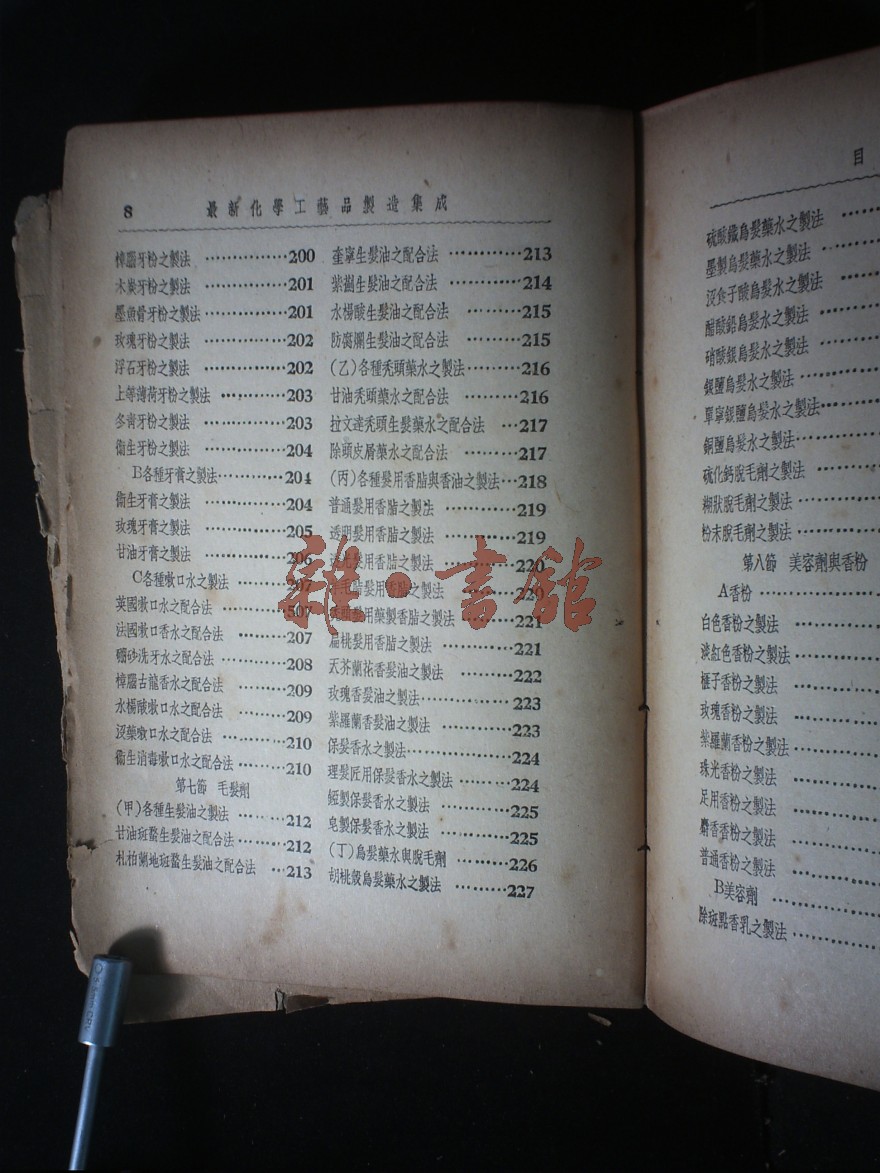 8 最新化學工藝品製造集成
樟腦牙粉之製法 ……………200
木炭牙粉之製法 ……………201
墨魚骨牙粉之製法……………201
玫瑰牙粉之製法 ……………202
浮石牙粉之製法 ……………202
上等薄荷牙粉之製法 …………203
冬青牙粉之製法 ……………203
衞生牙粉之製法 ……………204
B各種牙膏之製法…………204
衞生牙膏之製法 ……………204
玫瑰牙膏之製法 ……………205
甘油牙膏之製法 ……………206
C各種嗽口水之製法 ………207
英國嗽口水之配合法 …………507
法國嗽口香水之配合法 ………207
硼砂洗牙水之配合法 …………208
樟腦古龍香水之配合法 ………209
水楊酸嗽口水之配合法 ………209
沒藥嗽口水之配合法 …………210
衞生消毒嗽口水之配合法 ……210
第七節 毛髮劑
(甲)各種生髮油之製法 ………212
甘油斑蝥生髮油之配合法………212
札柏蘭地斑蝥生髮油之配合法 …213
奎寧生髮油之配合法 …………213
紫 生髮油之配合法 …………214
水楊酸生髮油之配合法 ………215
防腐爛生髮油之配合法 ………215
(乙)各種禿頭藥水之製法………216
甘油禿頭藥水之配合法 ………216
拉文達禿頭生髮藥水之配合法 …217
除頭皮屑藥水之配合法 ………217
(丙)各種髮用香脂與香油之製法…218
普通髮用香脂之製法 …………219
透明髮用香脂之製法 …………219
髮用香脂之製法 …………220
脂髮用 脂之製法 …………220
髮用藥製香脂之製法 ………221
扁桃髮用香脂之製法 …………221
天芥蘭花香髮油之製法 ………222
玫瑰香髮油之製法……………223
紫羅蘭香髮油之製法 …………223
保髮香水之製法………………224
理髮匠用保髮香水之製法 ……224
製保髮香水之製法 …………225
皂製保髮香水之製法 …………225
(丁)烏髮藥水與脫毛劑 ………226
胡桃殼烏髮藥水之製法 ………227
目
硫酸鐵烏髮藥水之製法 ……
墨製烏髮藥水之製法 ………
沒食子酸烏髮水之製法 ……
醋酸鉛烏髮水之製法 ………
硝酸銀烏髮水之製法 ………
銀鹽烏髮水之製法 …………
單寧銀鹽烏髮水之製法………
銅鹽烏髮水之製法……………
硫化鈣脫毛劑之製法 ………
糊狀脫毛劑之製法 …………
粉末脫毛劑之製法 …………
第八節 美容劑與香粉
A香粉 ………………
白色香粉之製法 ……………
淡紅色香粉之製法 …………
榧子香粉之製法 ……………
玫瑰香粉之製法 ……………
紫羅蘭香粉之製法 …………
珠光香粉之製法 ……………
足用香粉之製法 ……………
麝香香粉之製法 ……………
普通香粉之製法 ……………
B美容劑 ……………
除斑點香乳之製法 …………
雜·書館